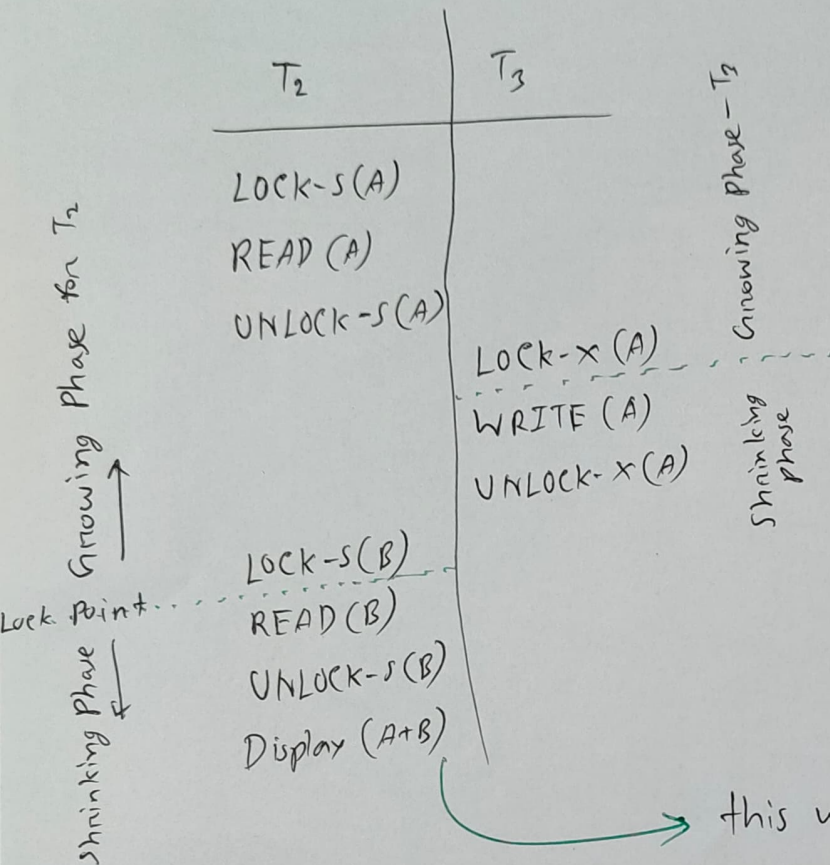 T2
T3
LOCK-S(A)
READ (A)
UNLOCK-S(A)
LOCK-X (A)
WRITE (A)
UNLOCK-X(A)
LOCK-S(B)
READ(B)
UNLOCK-S(B)
Display (A+B)
Growing Phase for T2
Lock Point
Shrinking Phase
Growing Phase-T3
Shrinking
phase
this